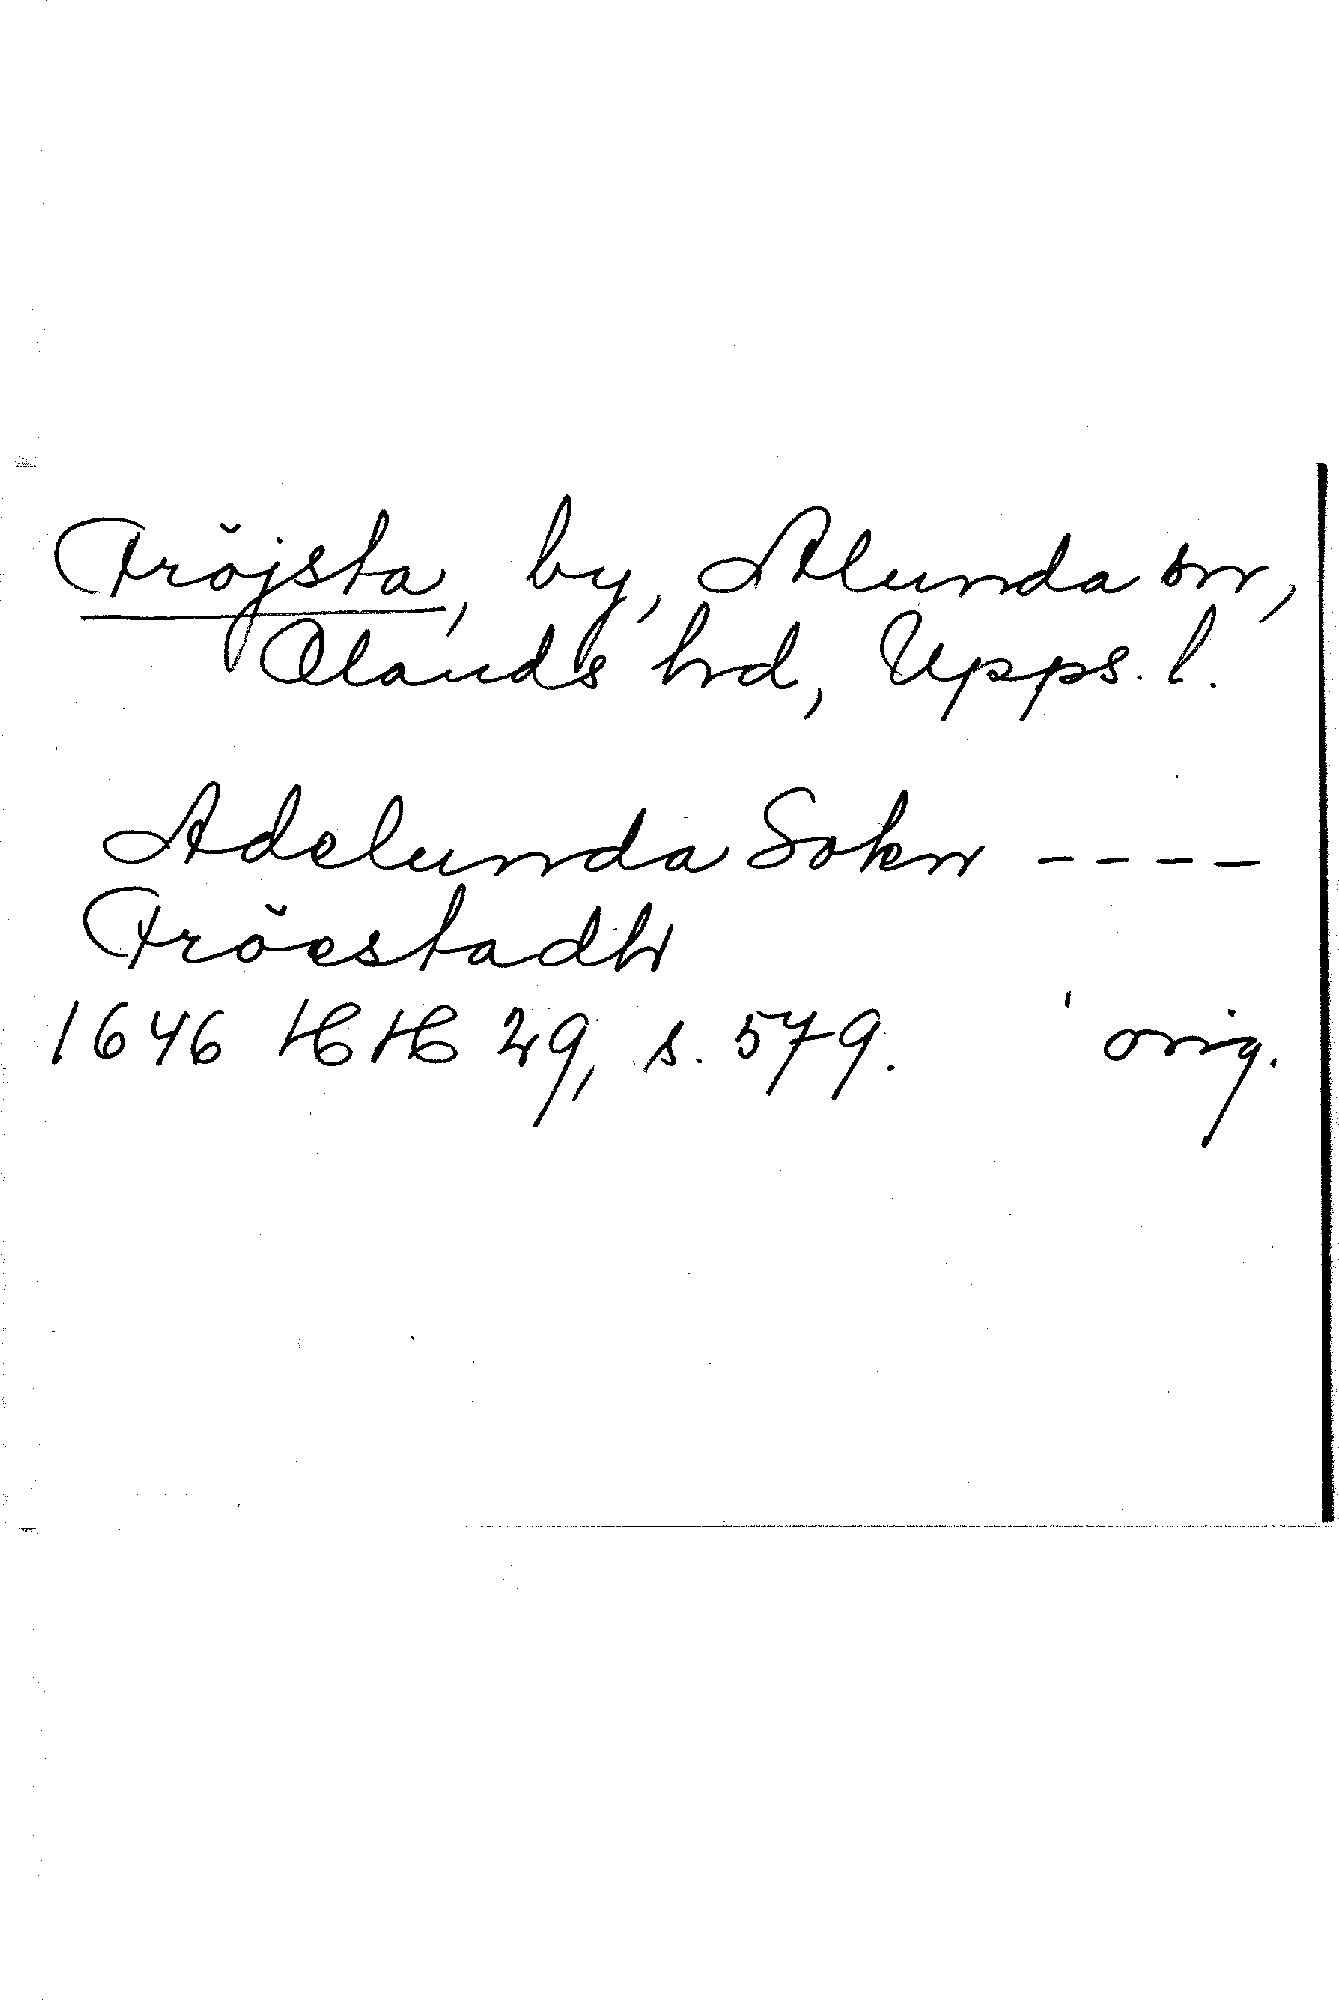 Fröjsta, by, Alunda sn,
Olands hrd, Upps. l.
Adelunda Sokn ----
Fröestadh
1646 HH 29, s. 579. orig.